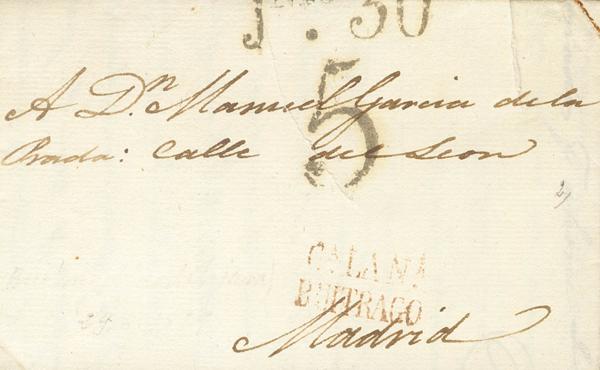 30
A Dn. Manuel Garcia de la
5
Prada: Calle del Leon
CALANA
BUITRAGO
Madrid